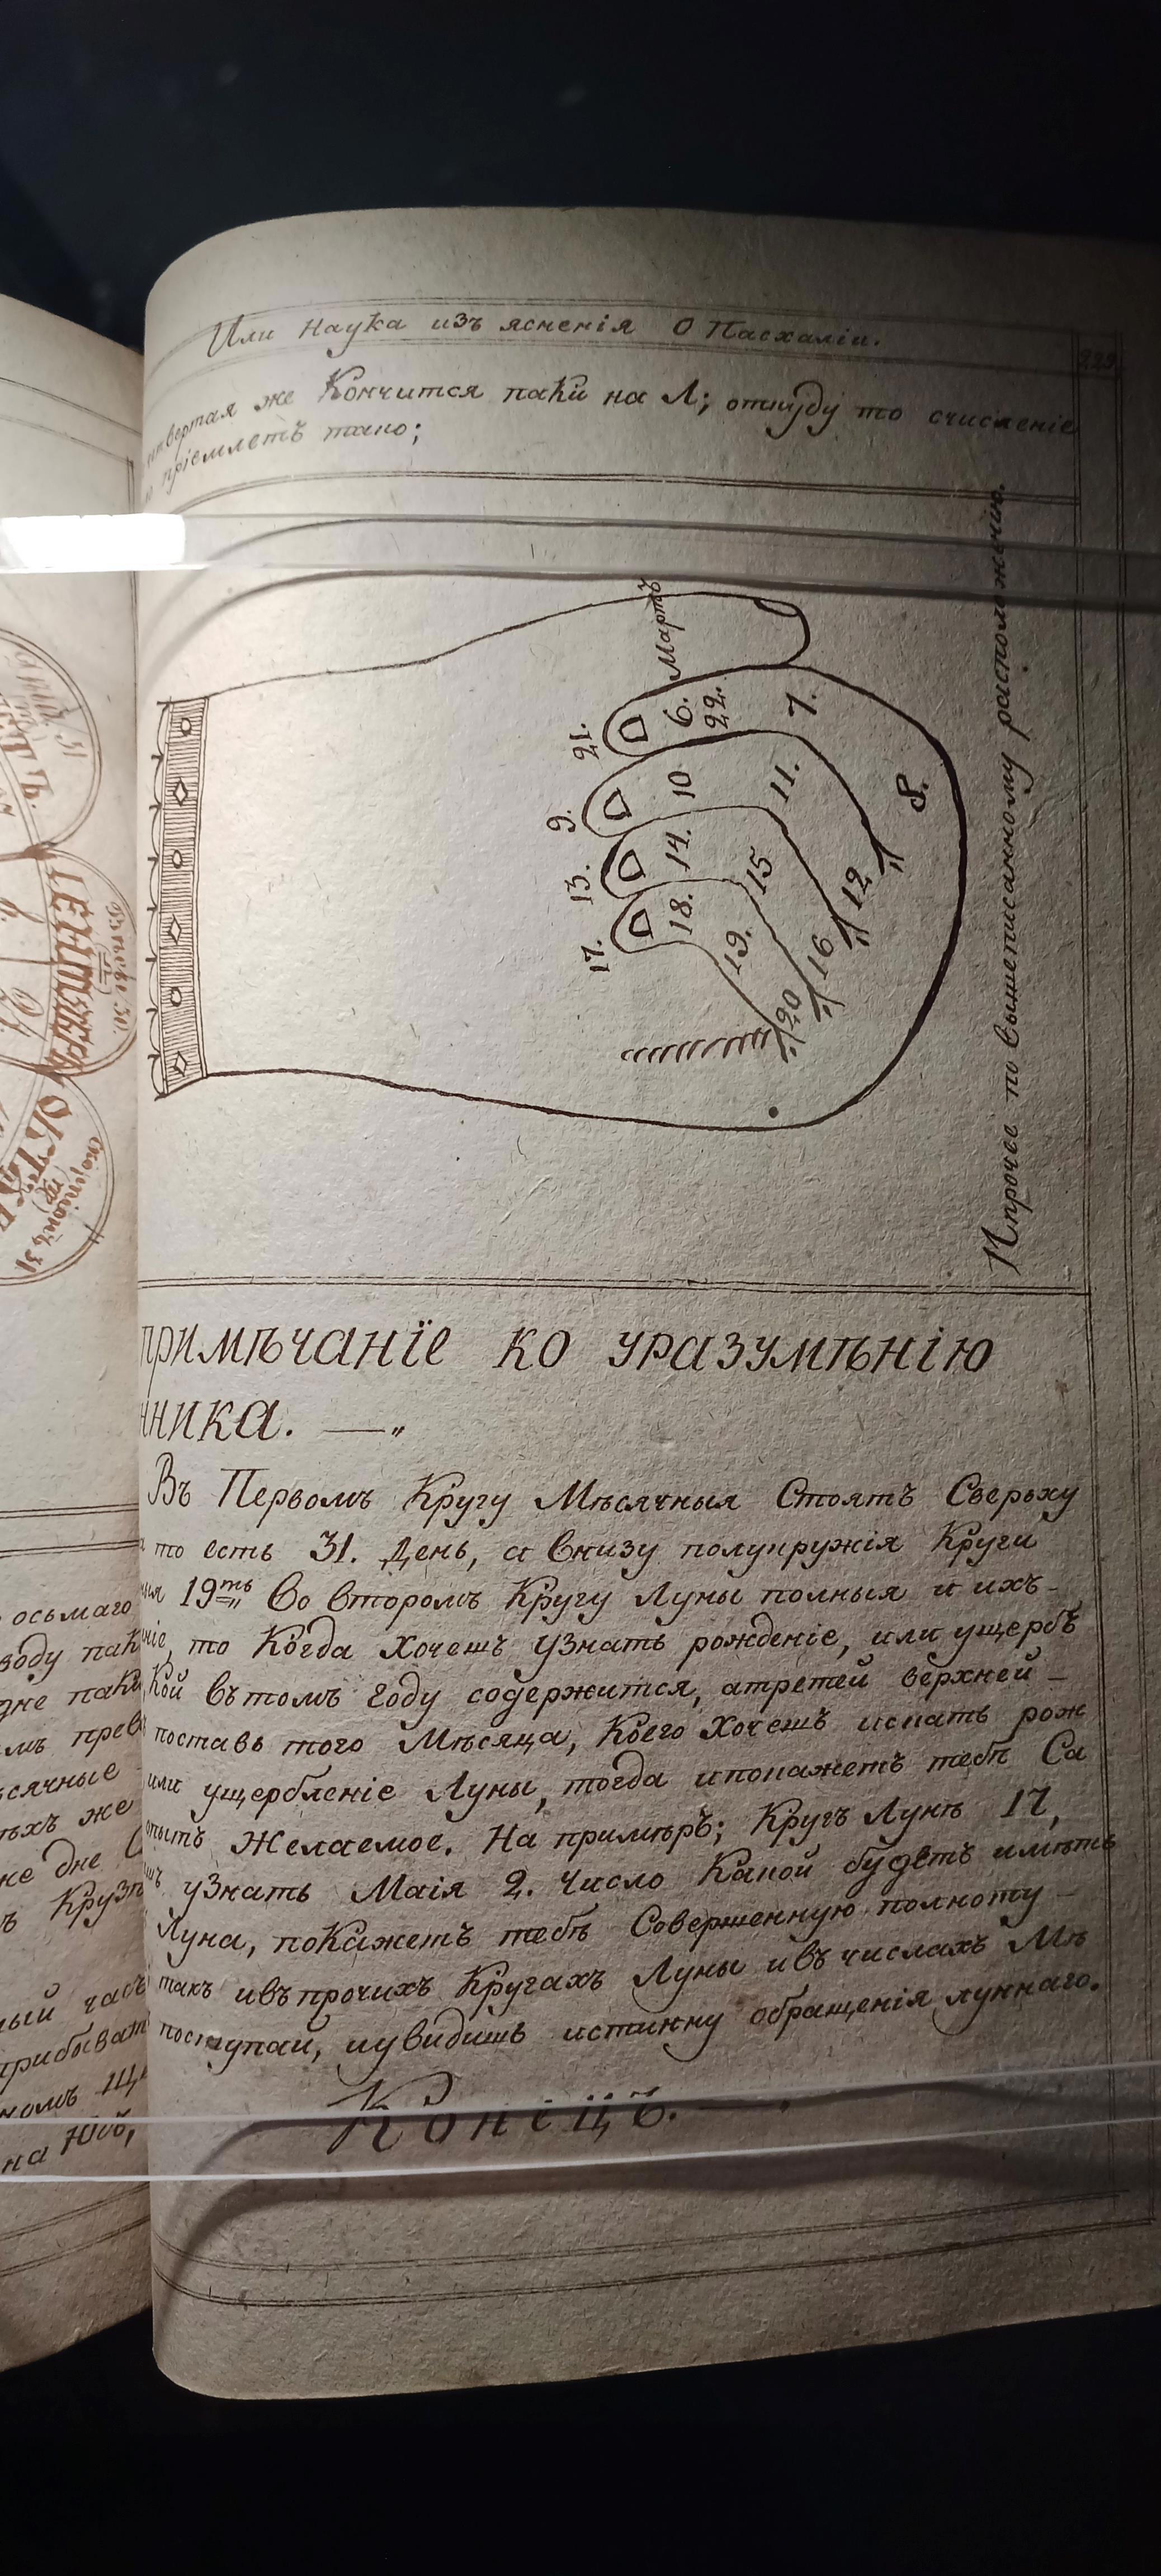 Или Наука изъ ясненія О Пасхаліи.
229
четвертая же Кончится паки на Л; откуду то счисленіе
пріемлетъ тако;
Мартъ
21. 6. 22. 7. 8.
9. 10 11. 12
13. 14. 15 16
17. 18. 19. 20
Ипрочее по вышеписанному расположенію.
примѣчанїе ко уразумѣнію
нника.
Въ Первомъ Кругу Мѣсячныя Стоятъ Сверьху
то есть 31. День, а внизу полукружія Круги
19ть Во второмъ Кругу Луны полныя и ихъ
ніе, то Когда хочешъ узнать рожденіе, или ущербъ
Кой втомъ году содержится, атретей верхней
поставь того Мѣсяца, Коего хочешъ искать рож
или ущербленіе Луны, тогда ипокажетъ тебѣ Са
опытъ Желаемое. На примѣръ; Кругъ Лунѣ 17,
узнать Маія 2. Число Какой будетъ имѣть
Луна, покажетъ тебѣ Совершенную полноту
такъ ивъпрочихъ Кругахъ Луны ивъ числахъ Мѣ
поступай, иувидишь истинну обращенія луннаго.
Конецъ.
СЕНТЯБРЬ
осьмаго
воду паки
дне паки
сячные
же дне
ный часъ
прибыват
на Юб,